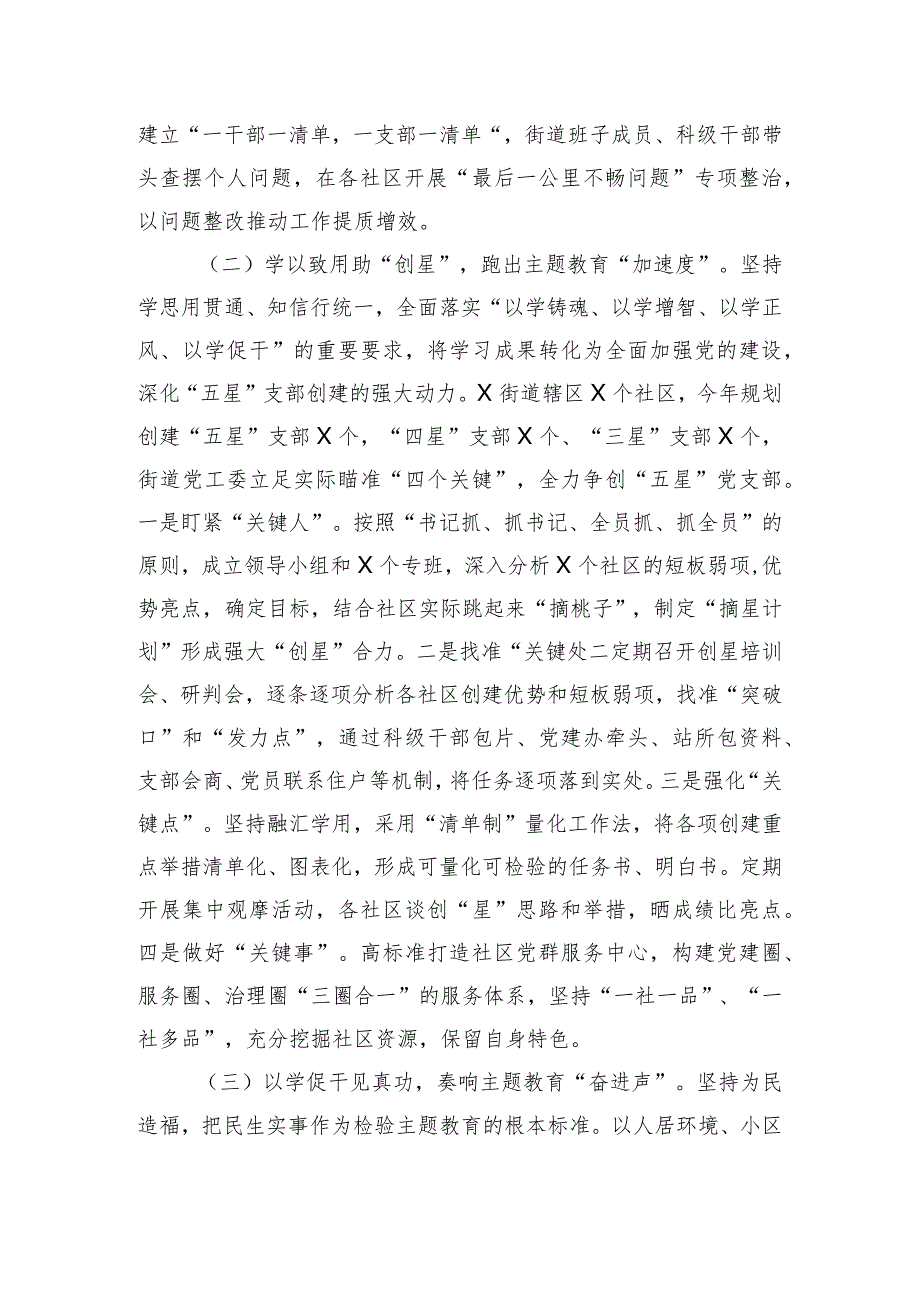 建立“一干部一清单，一支部一清单“，街道班子成员、科级干部带
头查摆个人问题，在各社区开展“最后一公里不畅问题”专项整治，
以问题整改推动工作提质增效。
（二）学以致用助“创星”，跑出主题教育“加速度”。坚持
学思用贯通、知信行统一，全面落实“以学铸魂、以学增智、以学正
风、以学促干”的重要要求，将学习成果转化为全面加强党的建设，
深化“五星”支部创建的强大动力。X街道辖区X个社区，今年规划
创建“五星”支部X个，“四星”支部X个、“三星”支部X个，
街道党工委立足实际瞄准“四个关键”，全力争创“五星”党支部。
一是盯紧“关键人”。按照“书记抓、抓书记、全员抓、抓全员”的
原则，成立领导小组和X个专班，深入分析X个社区的短板弱项,优
势亮点，确定目标，结合社区实际跳起来“摘桃子”，制定“摘星计
划”形成强大“创星”合力。二是找准“关键处二定期召开创星培训
会、研判会，逐条逐项分析各社区创建优势和短板弱项，找准“突破
口”和“发力点”，通过科级干部包片、党建办牵头、站所包资料、
支部会商、党员联系住户等机制，将任务逐项落到实处。三是强化“关
键点”。坚持融汇学用，采用“清单制”量化工作法，将各项创建重
点举措清单化、图表化，形成可量化可检验的任务书、明白书。定期
开展集中观摩活动，各社区谈创“星”思路和举措，晒成绩比亮点。
四是做好“关键事”。高标准打造社区党群服务中心，构建党建圈、
服务圈、治理圈“三圈合一”的服务体系，坚持“一社一品”、“一
社多品”，充分挖掘社区资源，保留自身特色。
（三）以学促干见真功，奏响主题教育“奋进声”。坚持为民
造福，把民生实事作为检验主题教育的根本标准。以人居环境、小区